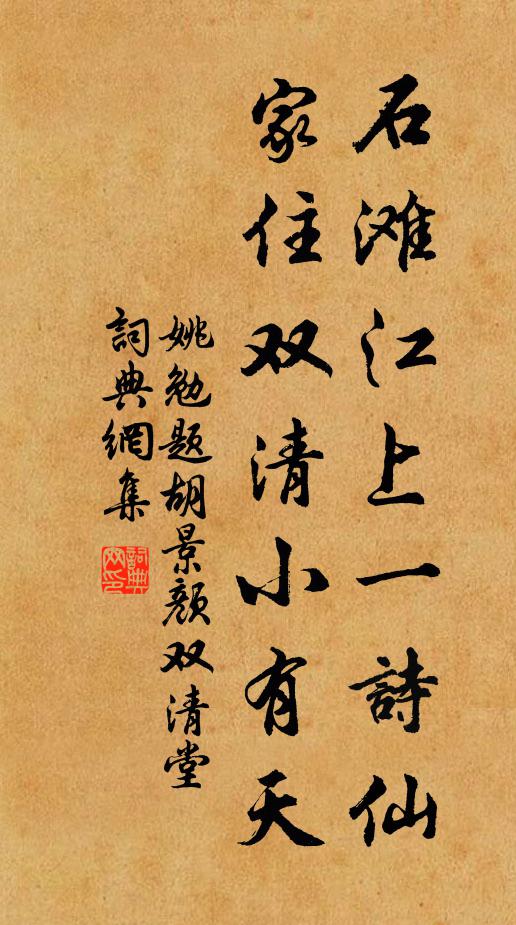 石滩江上一詩仙
家住双清小有天
姚勉题胡景颜双清堂
詞典網集
詞典网印